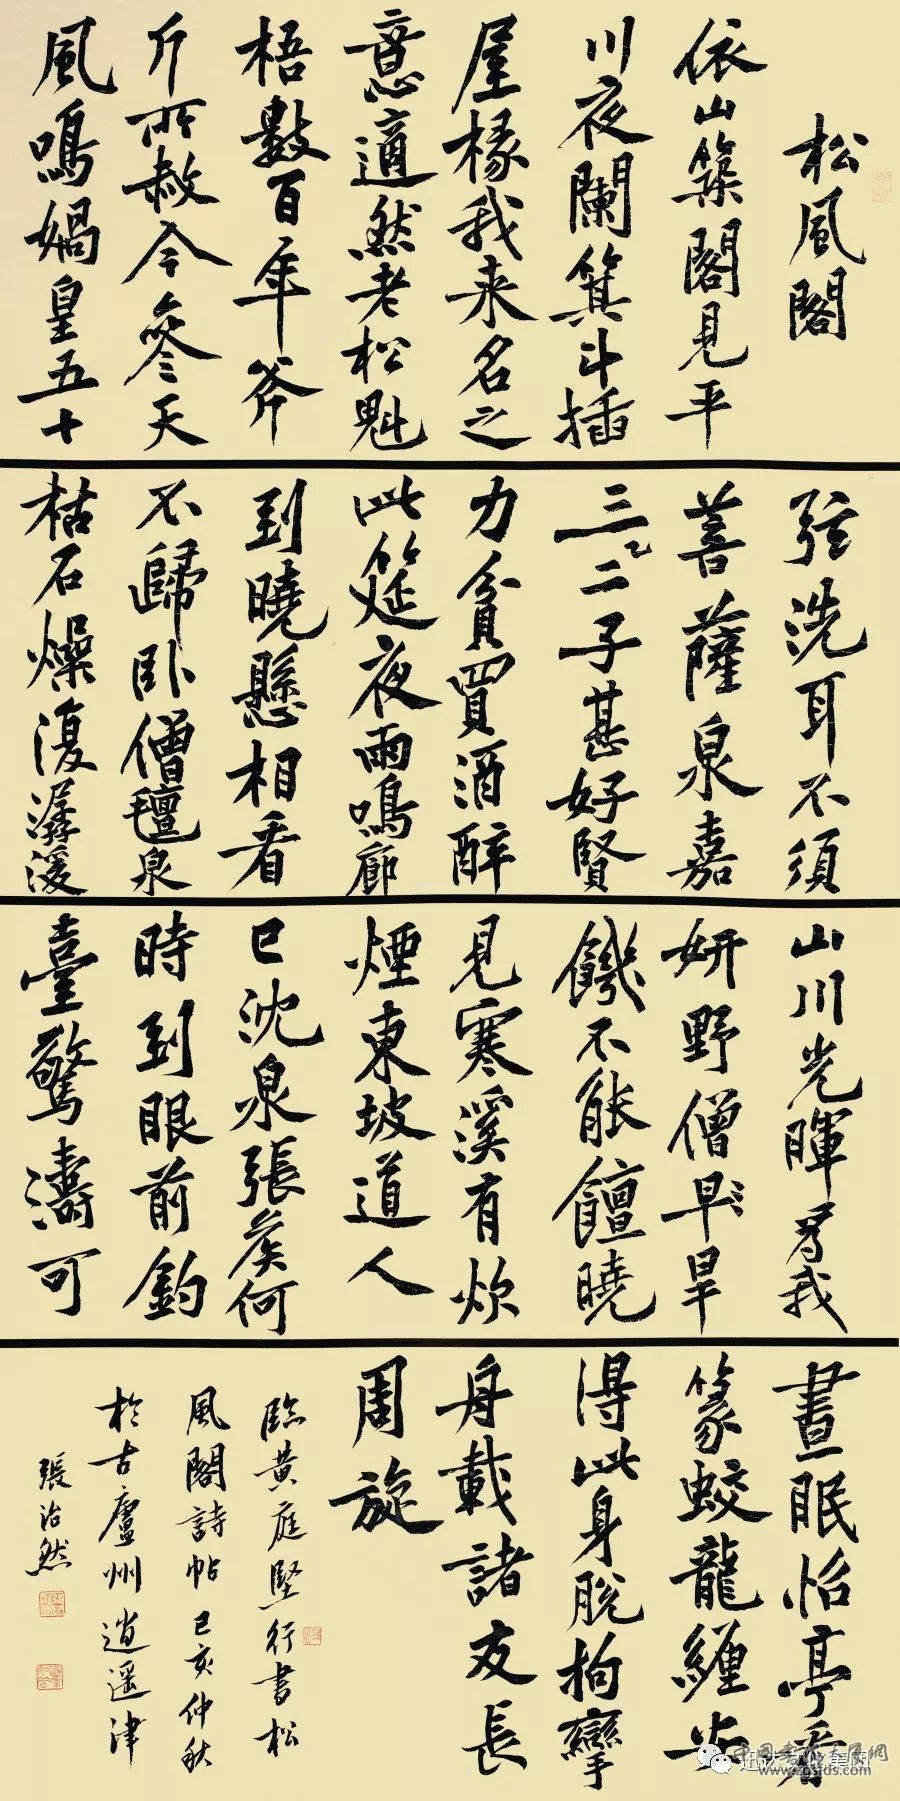 松風閣
依山築閣見平
川夜闌箕斗插
屋椽我来名之
意適然老松魁
梧數百年斧
斤所赦今參天
風鳴媧皇五十
弦洗耳不須
菩薩泉嘉
三二子甚好賢
力貧買酒醉
此筵夜雨鳴廊
到曉懸相看
不歸卧僧氊泉
枯石燥復潺湲
山川光暉爲我
妍野僧早旱
饑不能饘曉
見寒溪有炊
煙東坡道人
已沈泉張矦何
時到眼前釣
臺驚濤可
晝眠怡亭看
篆蛟龍纏安
得此身脫拘攣
舟載諸友長
周旋
臨黄庭堅行書松
風閣詩帖己亥仲秋
於古廬州逍遥津
張治然
中国书法大展网
www.zgsfds.com